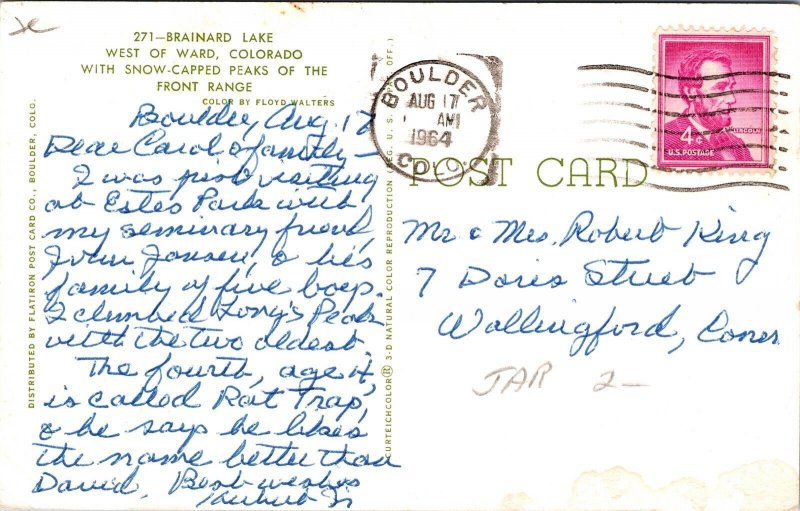 271—BRAINARD LAKE
WEST OF WARD, COLORADO
WITH SNOW-CAPPED PEAKS OF THE
FRONT RANGE
COLOR BY FLOYD WALTERS
Boulder, Aug. 17
Dear Carol & family —
I was just visiting
at Estes Park with
my seminary friend,
Jansen, & his
family of five boys.
I climbed Long's Peak
with the two oldest.
The fourth, age 4,
is called Rat Trap,
& he says he likes
the name better than
David. Best wishes
DISTRIBUTED BY FLATIRON POST CARD CO., BOULDER, COLO.
CURTEICHCOLOR® 3-D NATURAL COLOR REPRODUCTION (REG. U. S. PAT. OFF.)
BOULDER
AUG 17
AM
1964
COLO.
4¢
LINCOLN
U.S. POSTAGE
POST CARD
Mr & Mrs. Robert King
7 Doris Street
Wallingford, Conn
JAR 2—